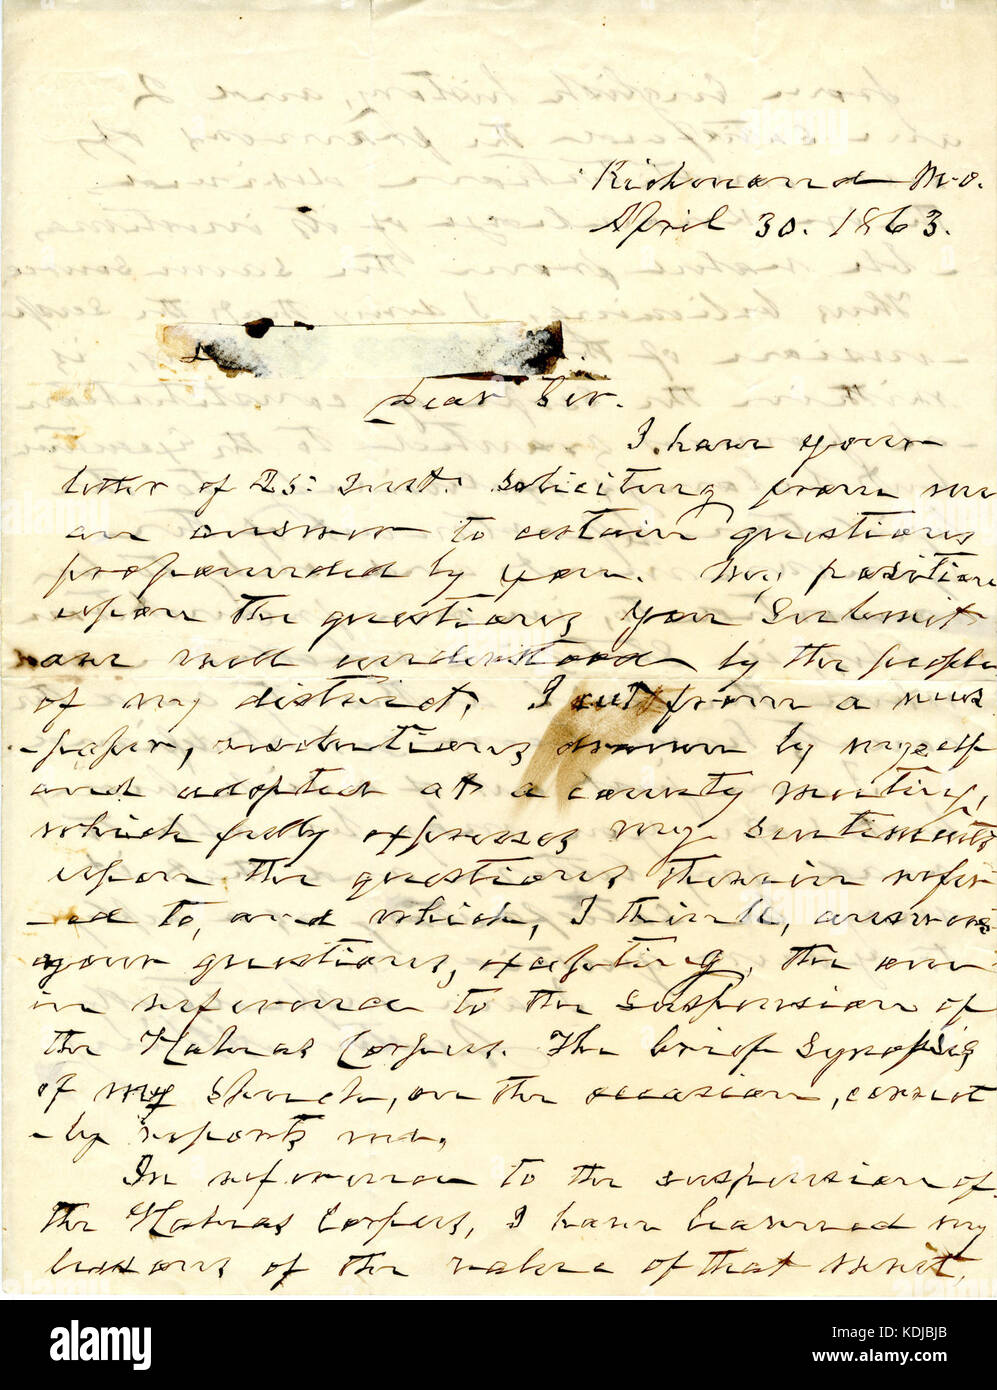 Richmond Mo.
April 30. 1863.
Dear Sir.
I have your
letter of 25: Inst. soliciting from me
an answer to certain questions
propounded by you. My position
upon the questions you submit
are well understood by the people
of my district, I cut from a news
-paper, resolutions drawn by myself
and adopted at a county meeting,
which fully expresses my sentiments
upon the questions therein refer
-ed to, and which, I think, answers
your questions, excepting, the one
in reference to the suspension of
the Habeas Corpus. The brief synopsis
of my speech, on the occasion, correct
-ly reports me.
In reference to the suspension of
the Habeas Corpus, I have learned my
lessons of the value of that writ,
alamy
Image ID: KDJBJB
www.alamy.com